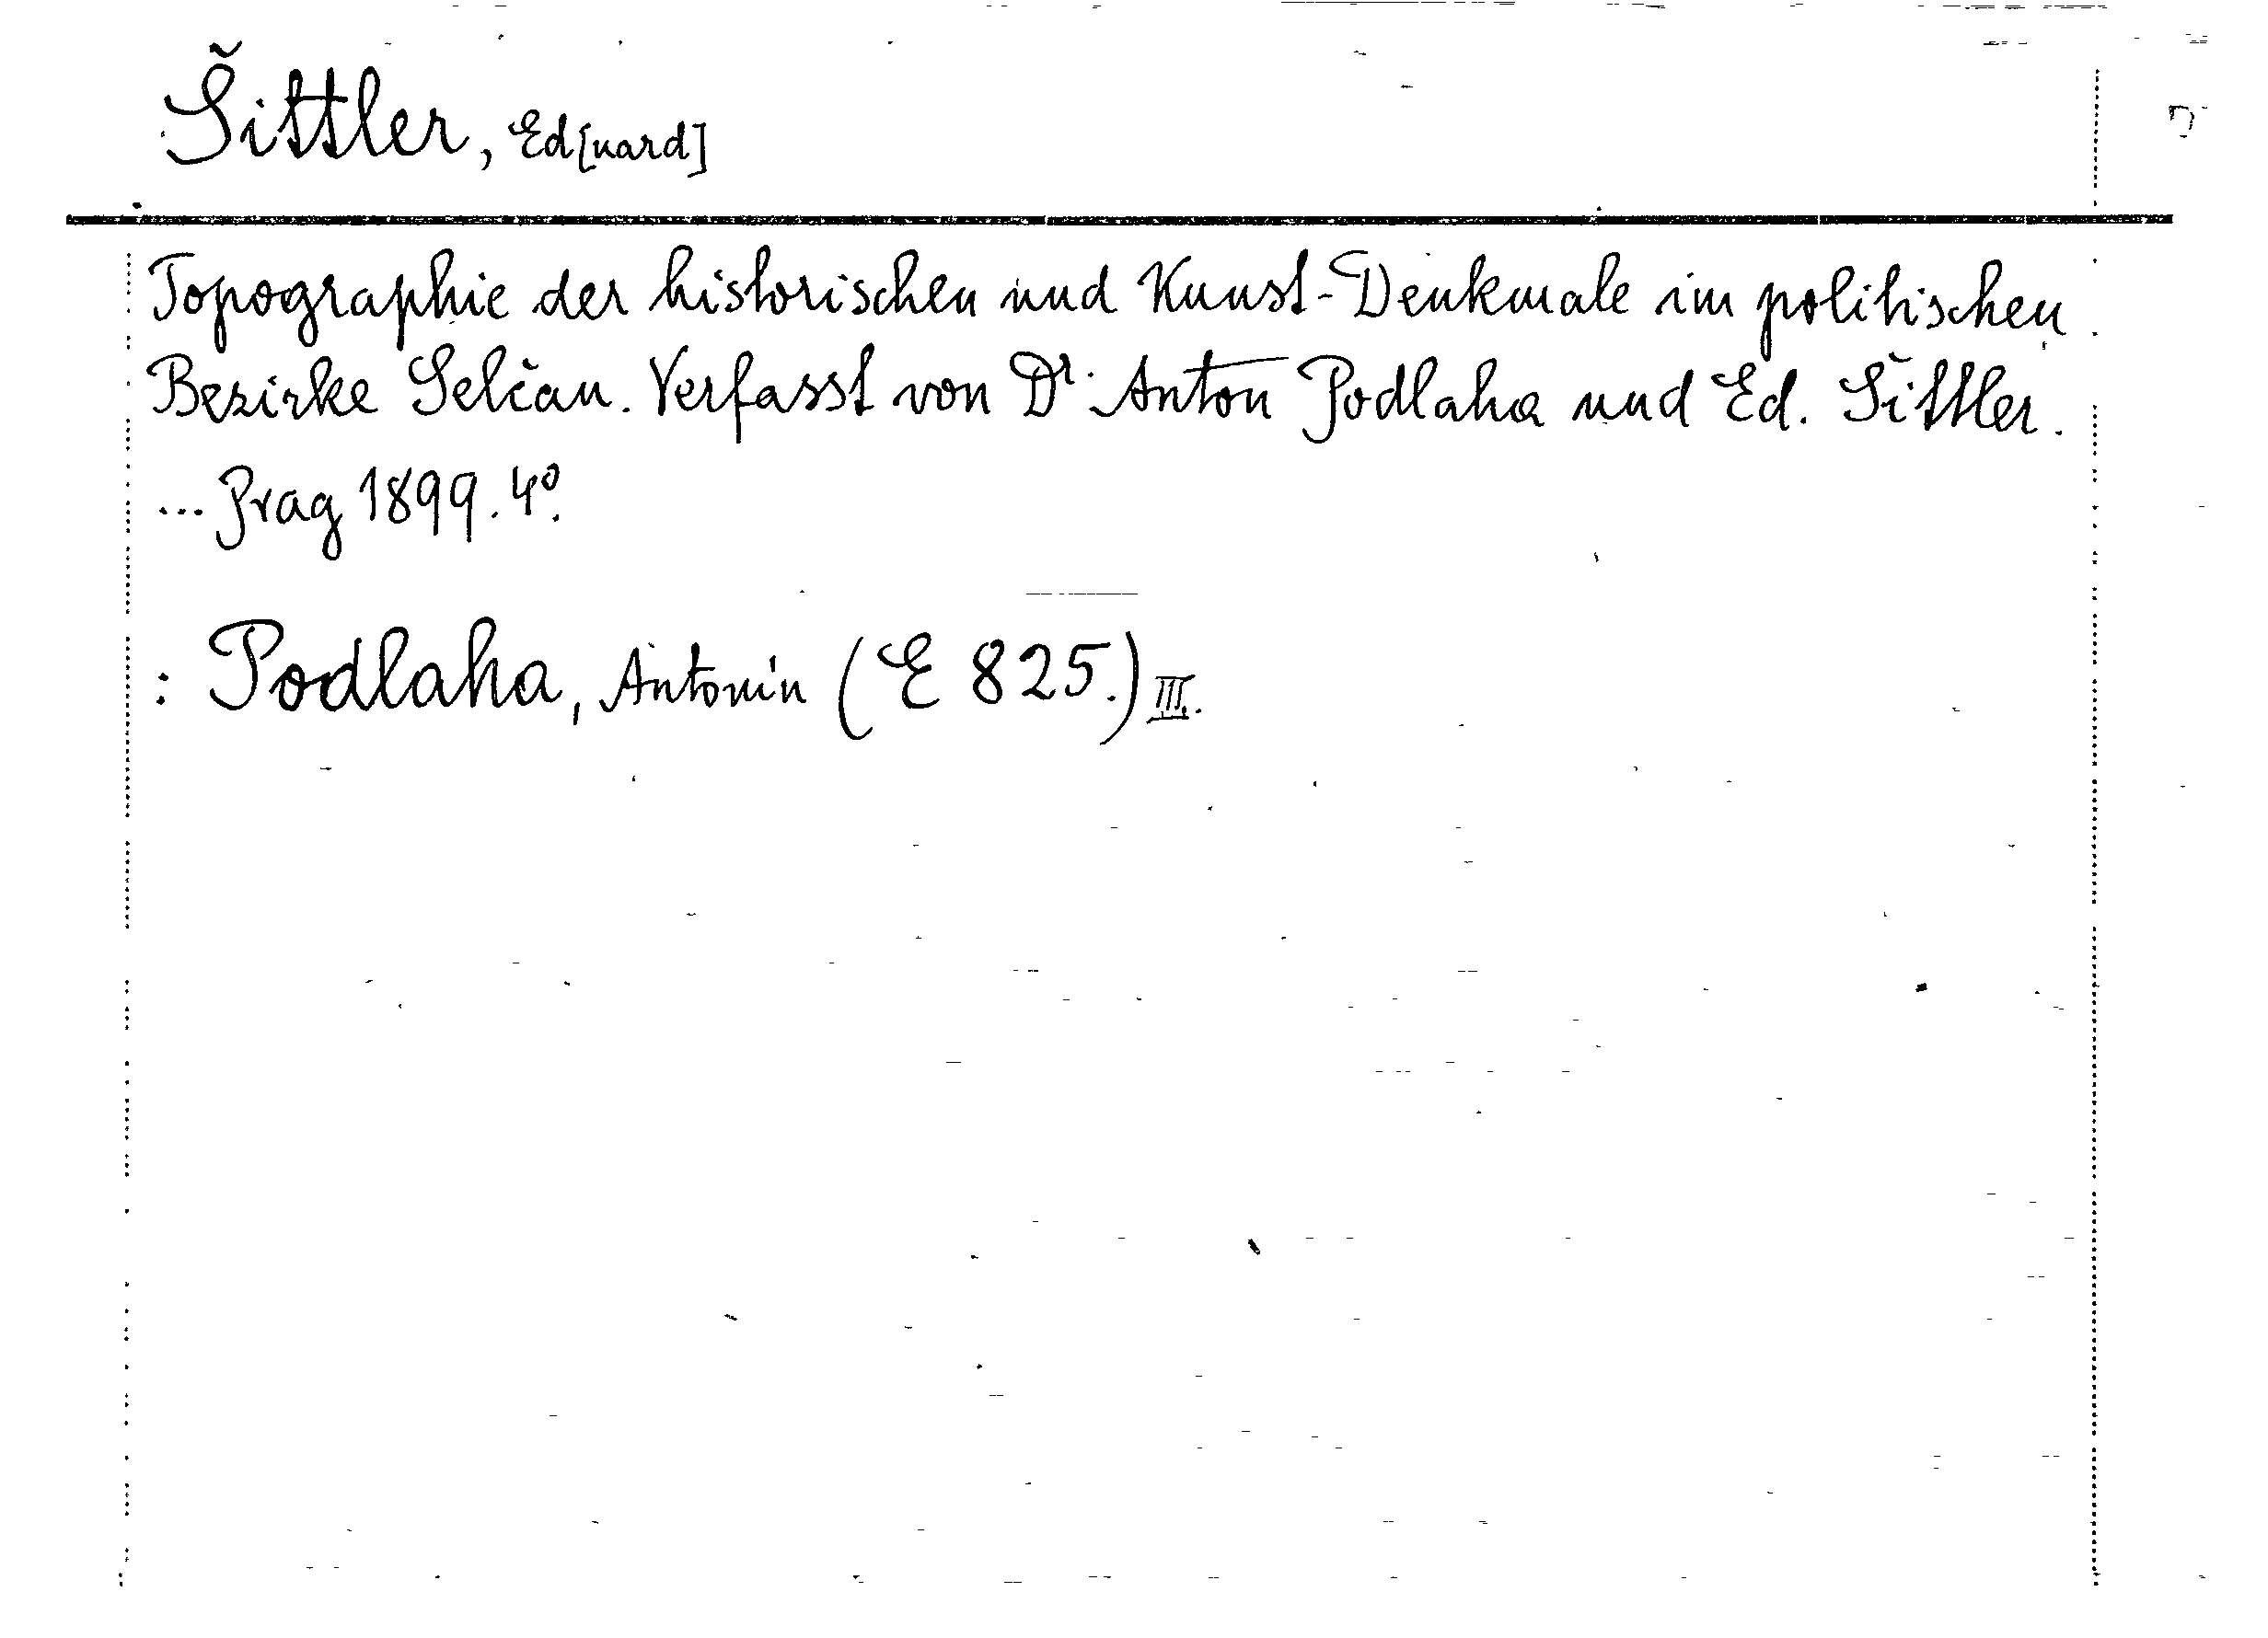 Šittler, Ed[uard]
Topographie der historischen und Kunst-Denkmale im politischen
Bezirke Selčan. Verfasst von Dr. Anton Podlaha und Ed. Šittler.
... Prag 1899. 4°.
: Podlaha, Antonín (E 825.) III.